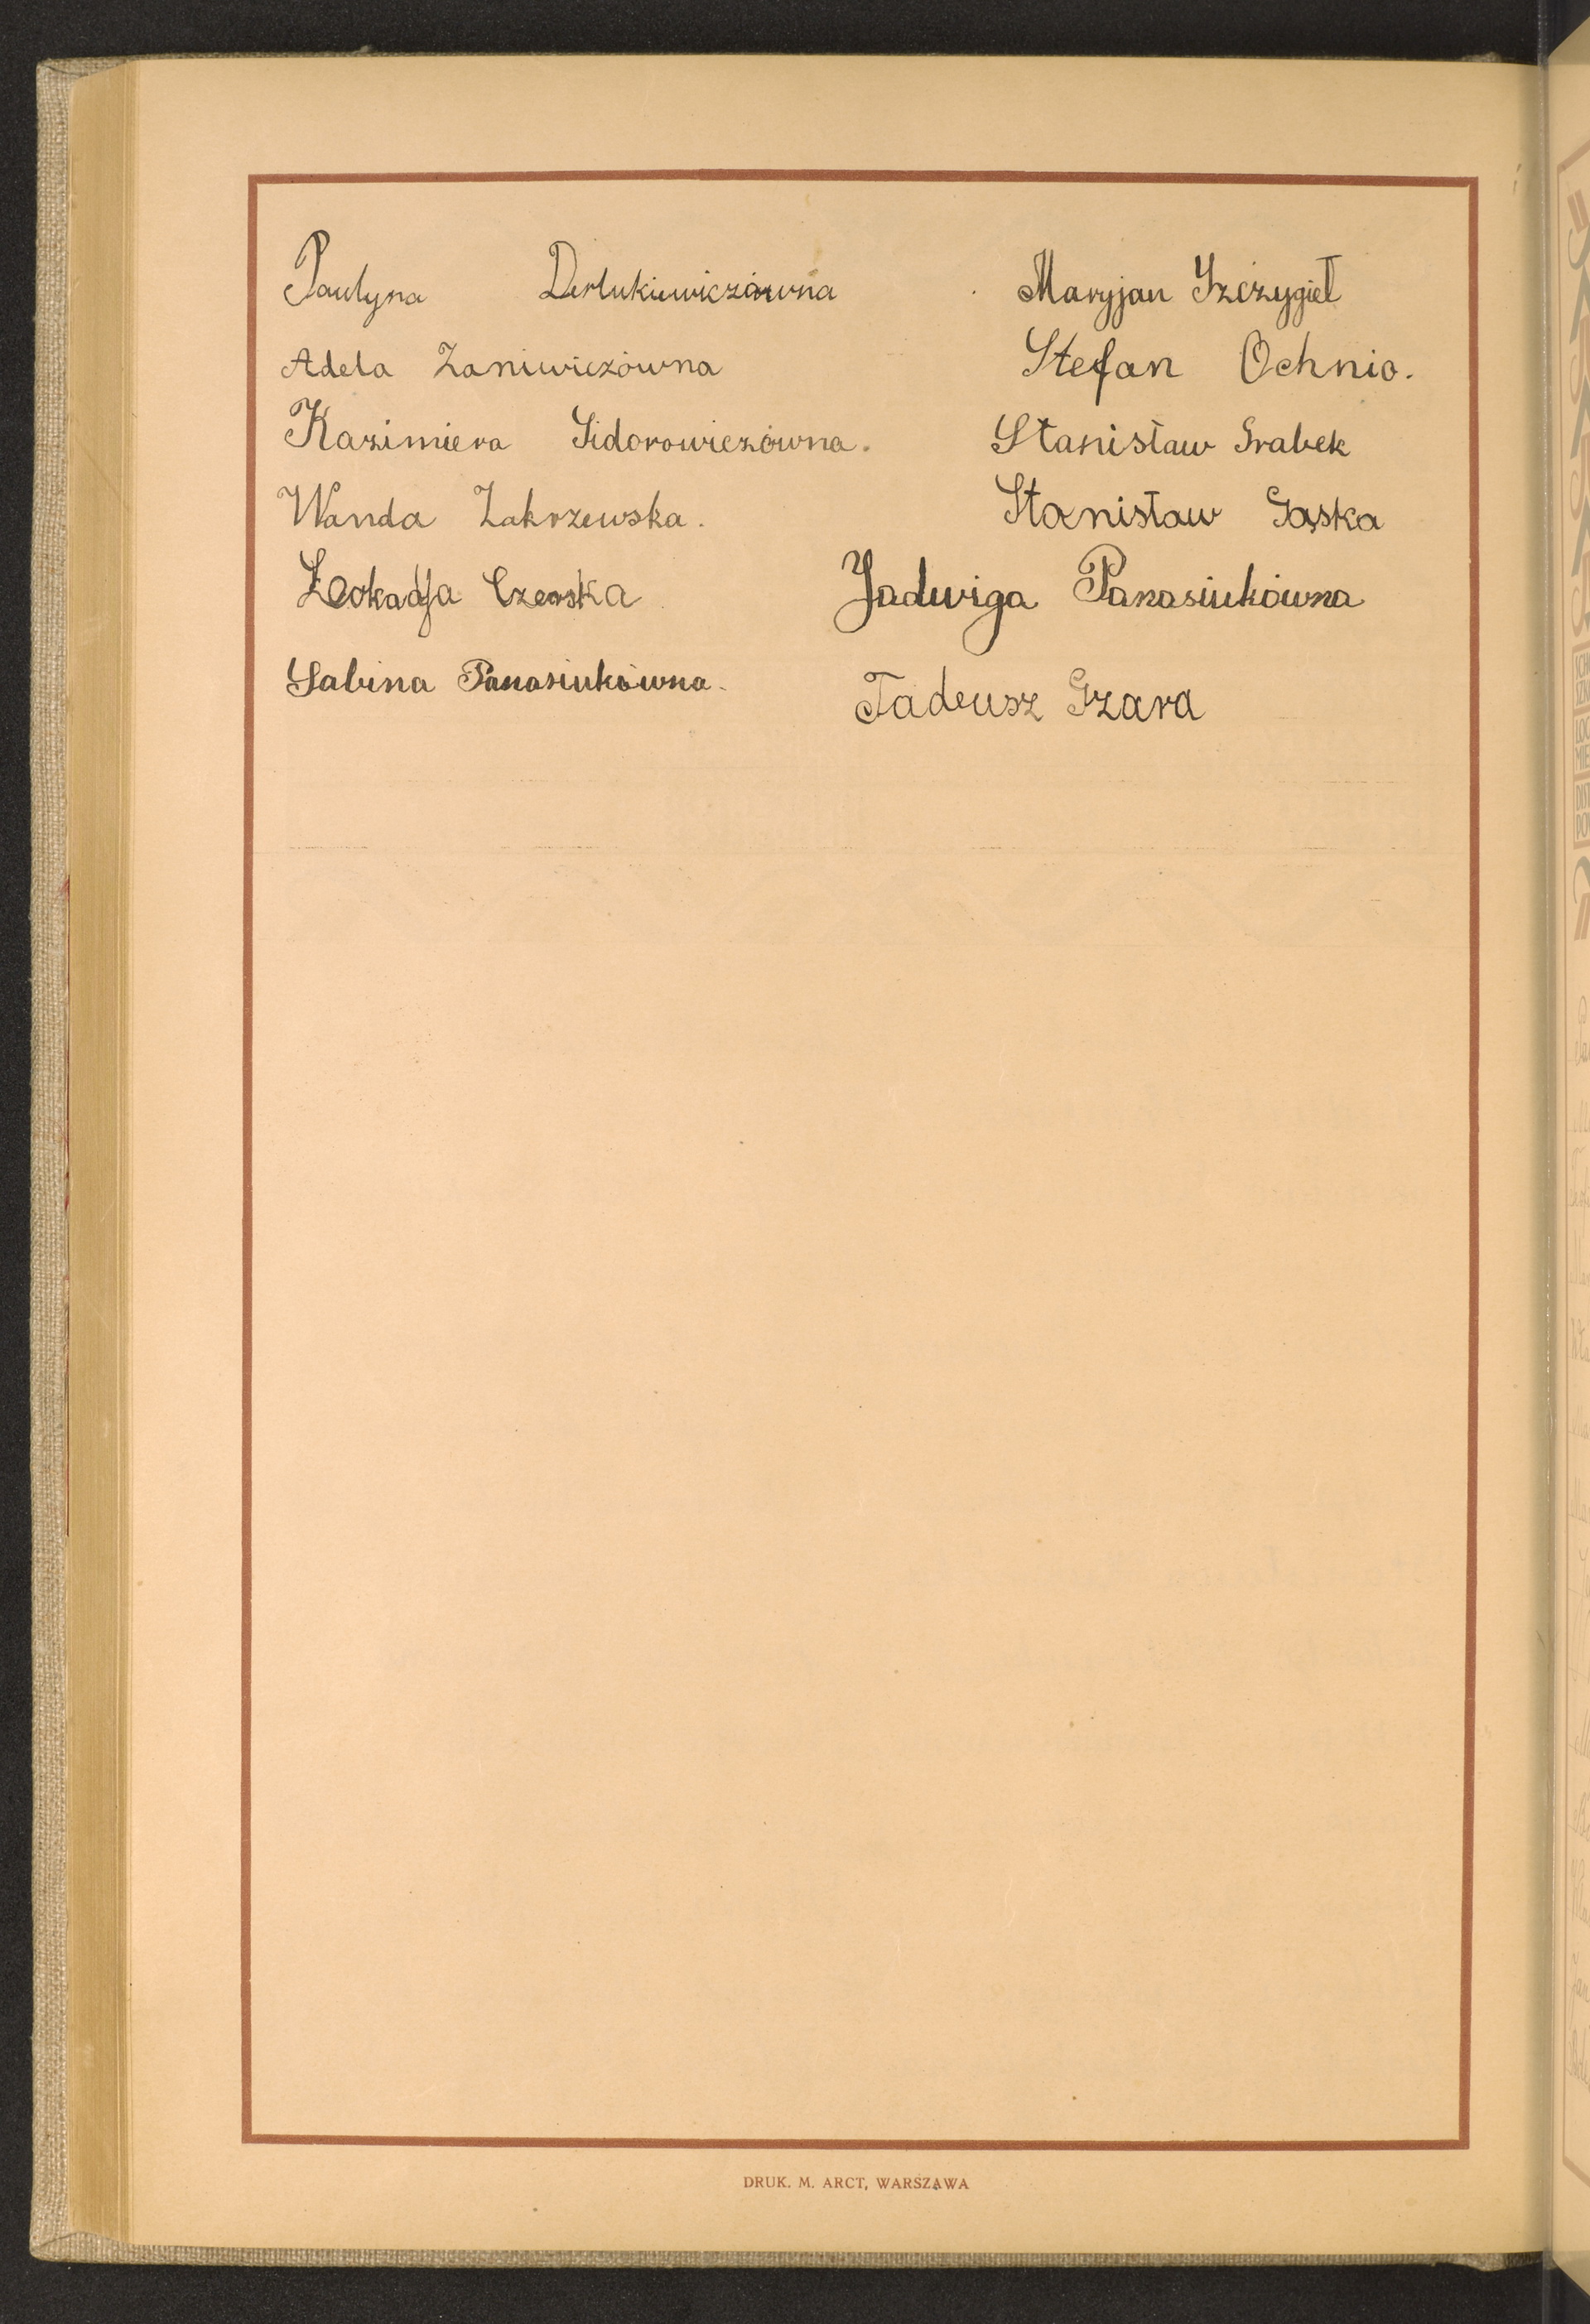 Paulyna Derlukiewiczówna
Adela Zaniwiczówna
Kazimiera Sidorowiczówna.
Wanda Zakrzewska.
Leokadja Czerska
Sabina Panasiukówna.
Maryjan Szczygieł
Stefan Ochnio.
Stanisław Grabek
Stanisław Gąska
Jadwiga Panasiukówna
Tadeusz Gzara
DRUK. M. ARCT, WARSZAWA